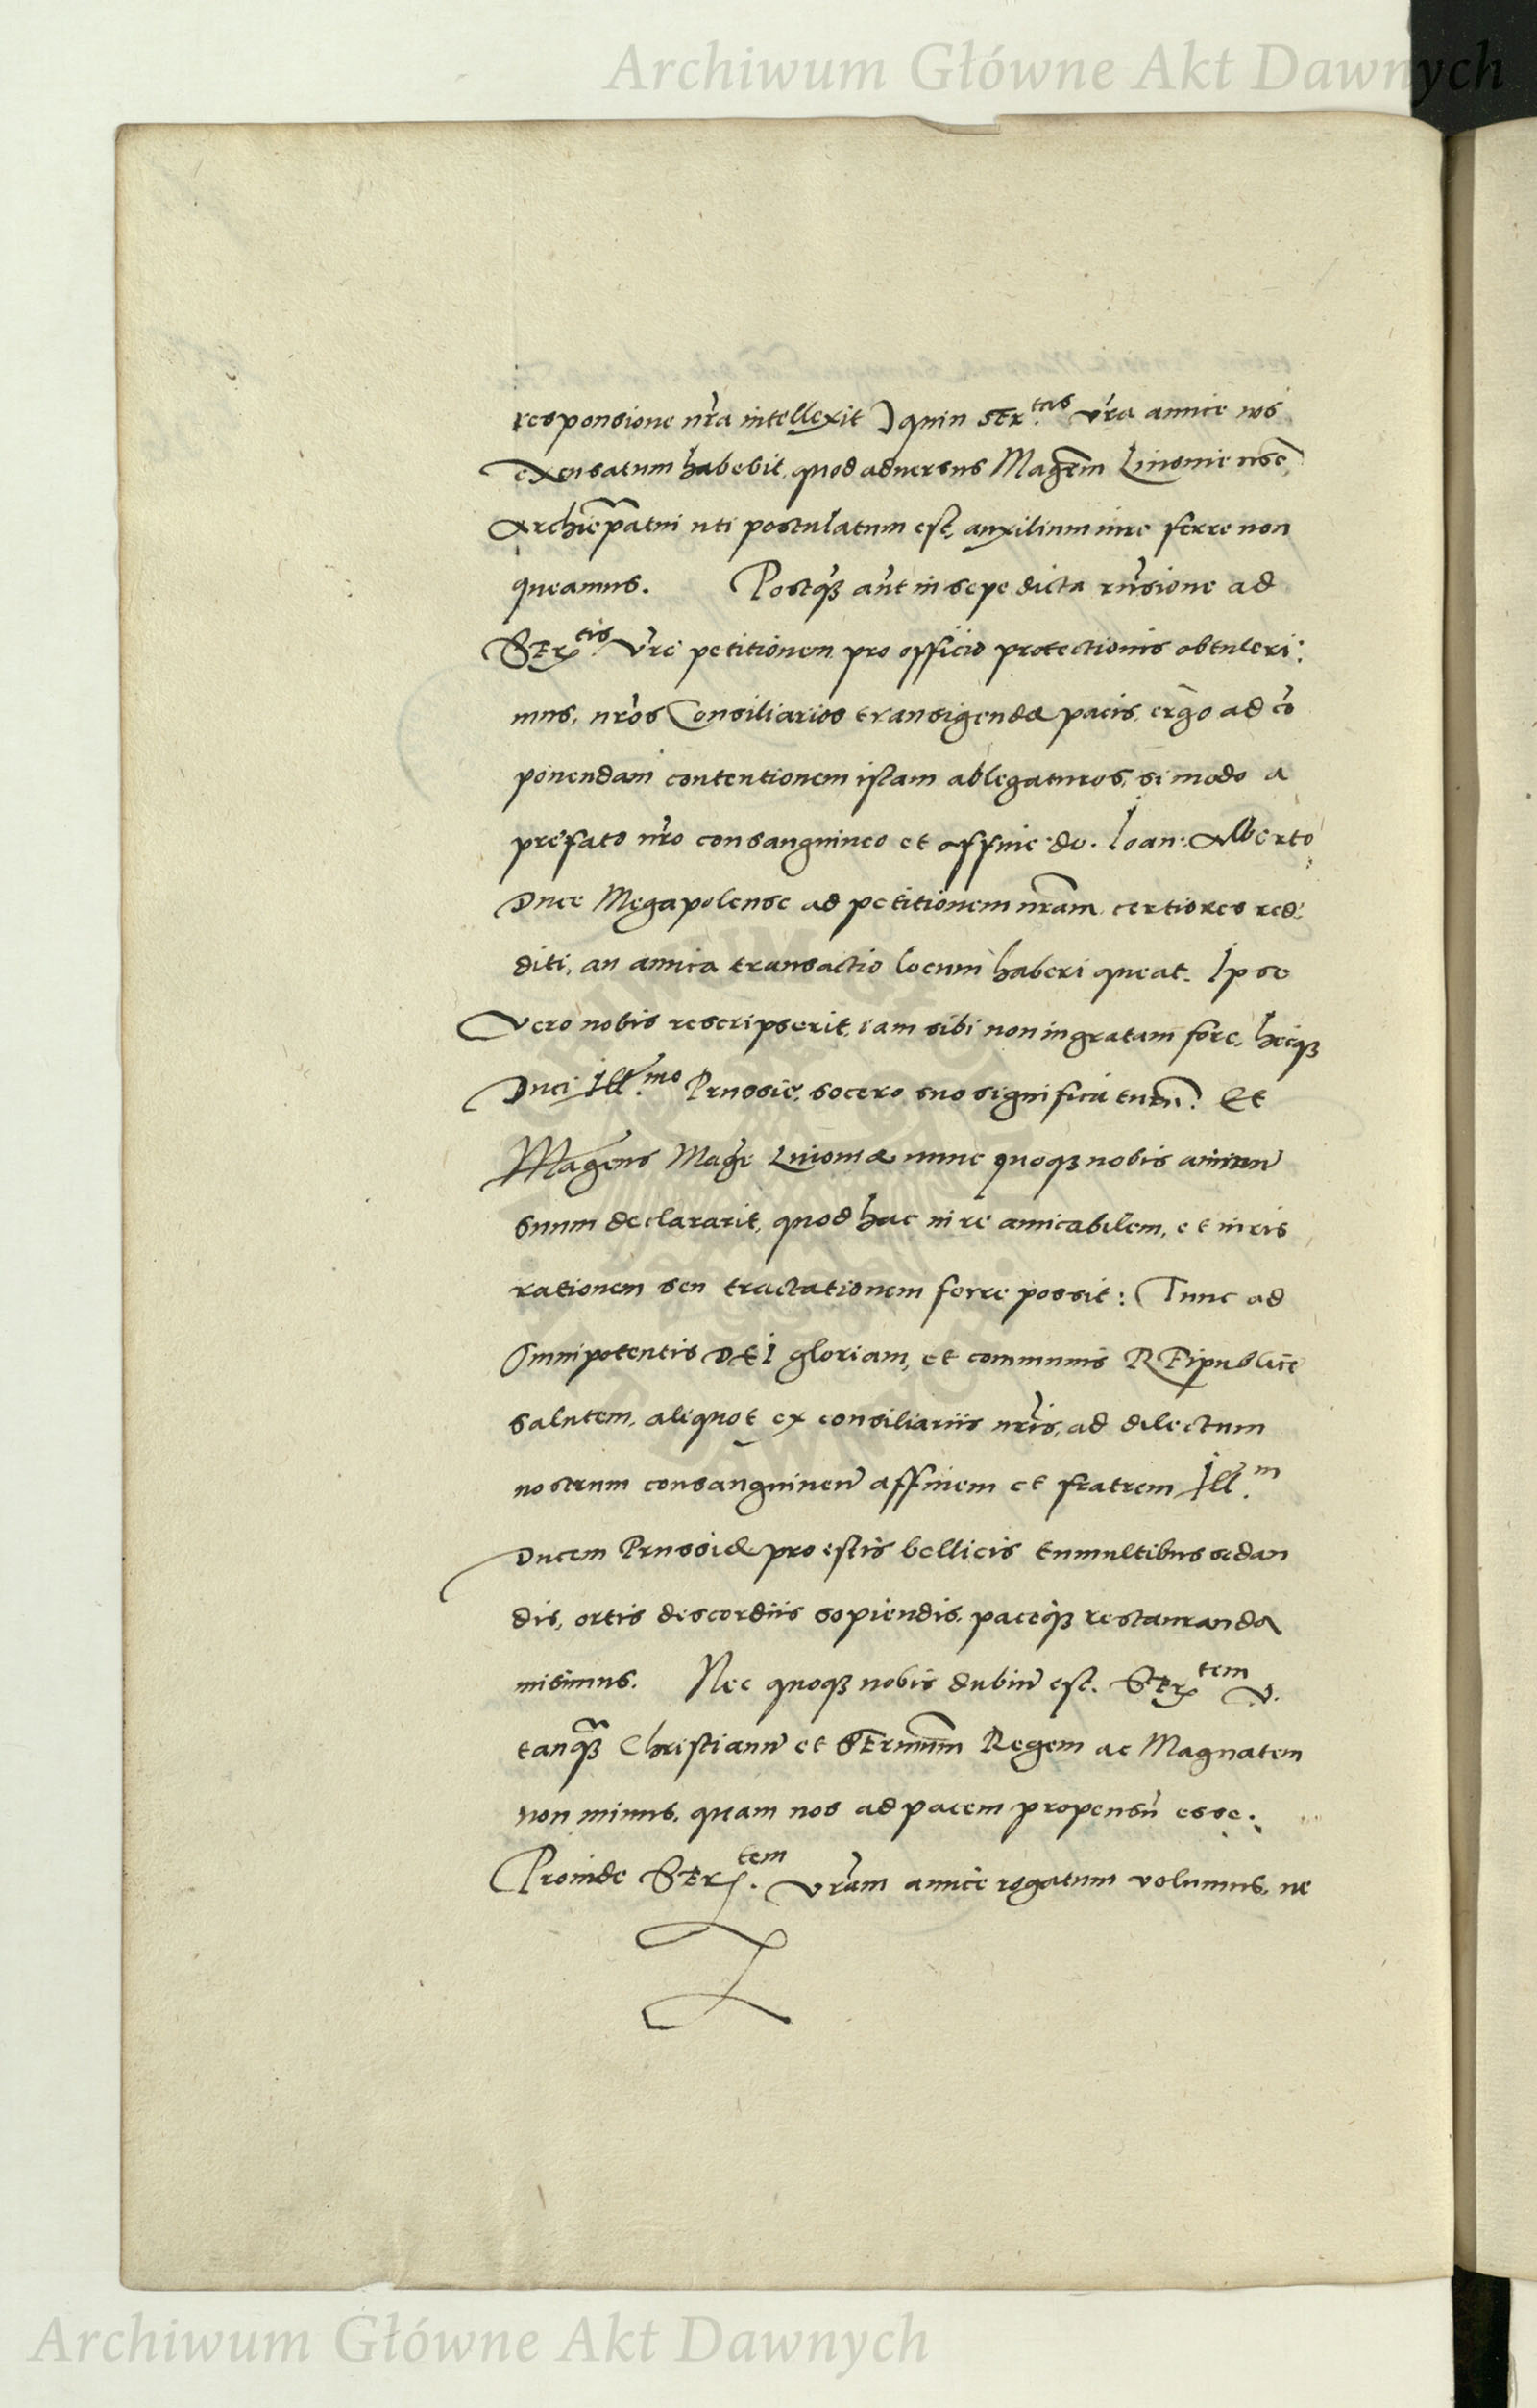 Archiwum Główne Akt Dawnych
responsione nr̃a intellexit) quin SEr:tas vr̃a amice nos
excusatum habebit, quod adversus Magr̃em Livoniensẽ,
Archiep̃atui uti postulatum est, auxilium iure ferre non
queamus. Postq̃ aũt in sepe dicta rñsione ad
SErtis vr̃e petitionem pro officio protectionis obtuleri:
mus, nr̃os Consiliarios transigendæ pacis, ergo ad cõ
ponendam contentionem istam ablegaturos, si modo a
prefato nr̃o consanguineo et affine do. Ioan: Alberto
Duce Megapolense ad petitionem nr̃am, certiores red:
diti, an amica transactio locum haberi queat. Ipse
Vero nobis rescripserit, iam sibi non ingratam fore, hecq3
Duci Ill.mo Prussiẽ, socero suo significaturũ. Et
Magr̃ Livoniæ nunc quoq3 nobis animũ
suum declararit, quod hac in re amicabilem, et iuris
rationem seu tractationem ferre possit: Tunc ad
Omnipotentis DEI gloriam, et communis REipublice
salutem, aliquot ex consiliariis nr̃is, ad dilectum
nostrum consanguineũ affinem et fratrem Ill.m
Ducem Prussiæ pro istis bellicis tumultibus sedan
dis, ortis discordiis sopiendis, paceq3 restauranda
misimus. Nec quoq3 nobis dubiũ est. SErtem V.
tanq̃3 Christianũ et SErmum Regem ac Magnatem
non minus, quam nos ad pacem propensũ esse.
Proinde SEr.tem vr̃am amice rogatum volumus, ne
Archiwum Główne Akt Dawnych